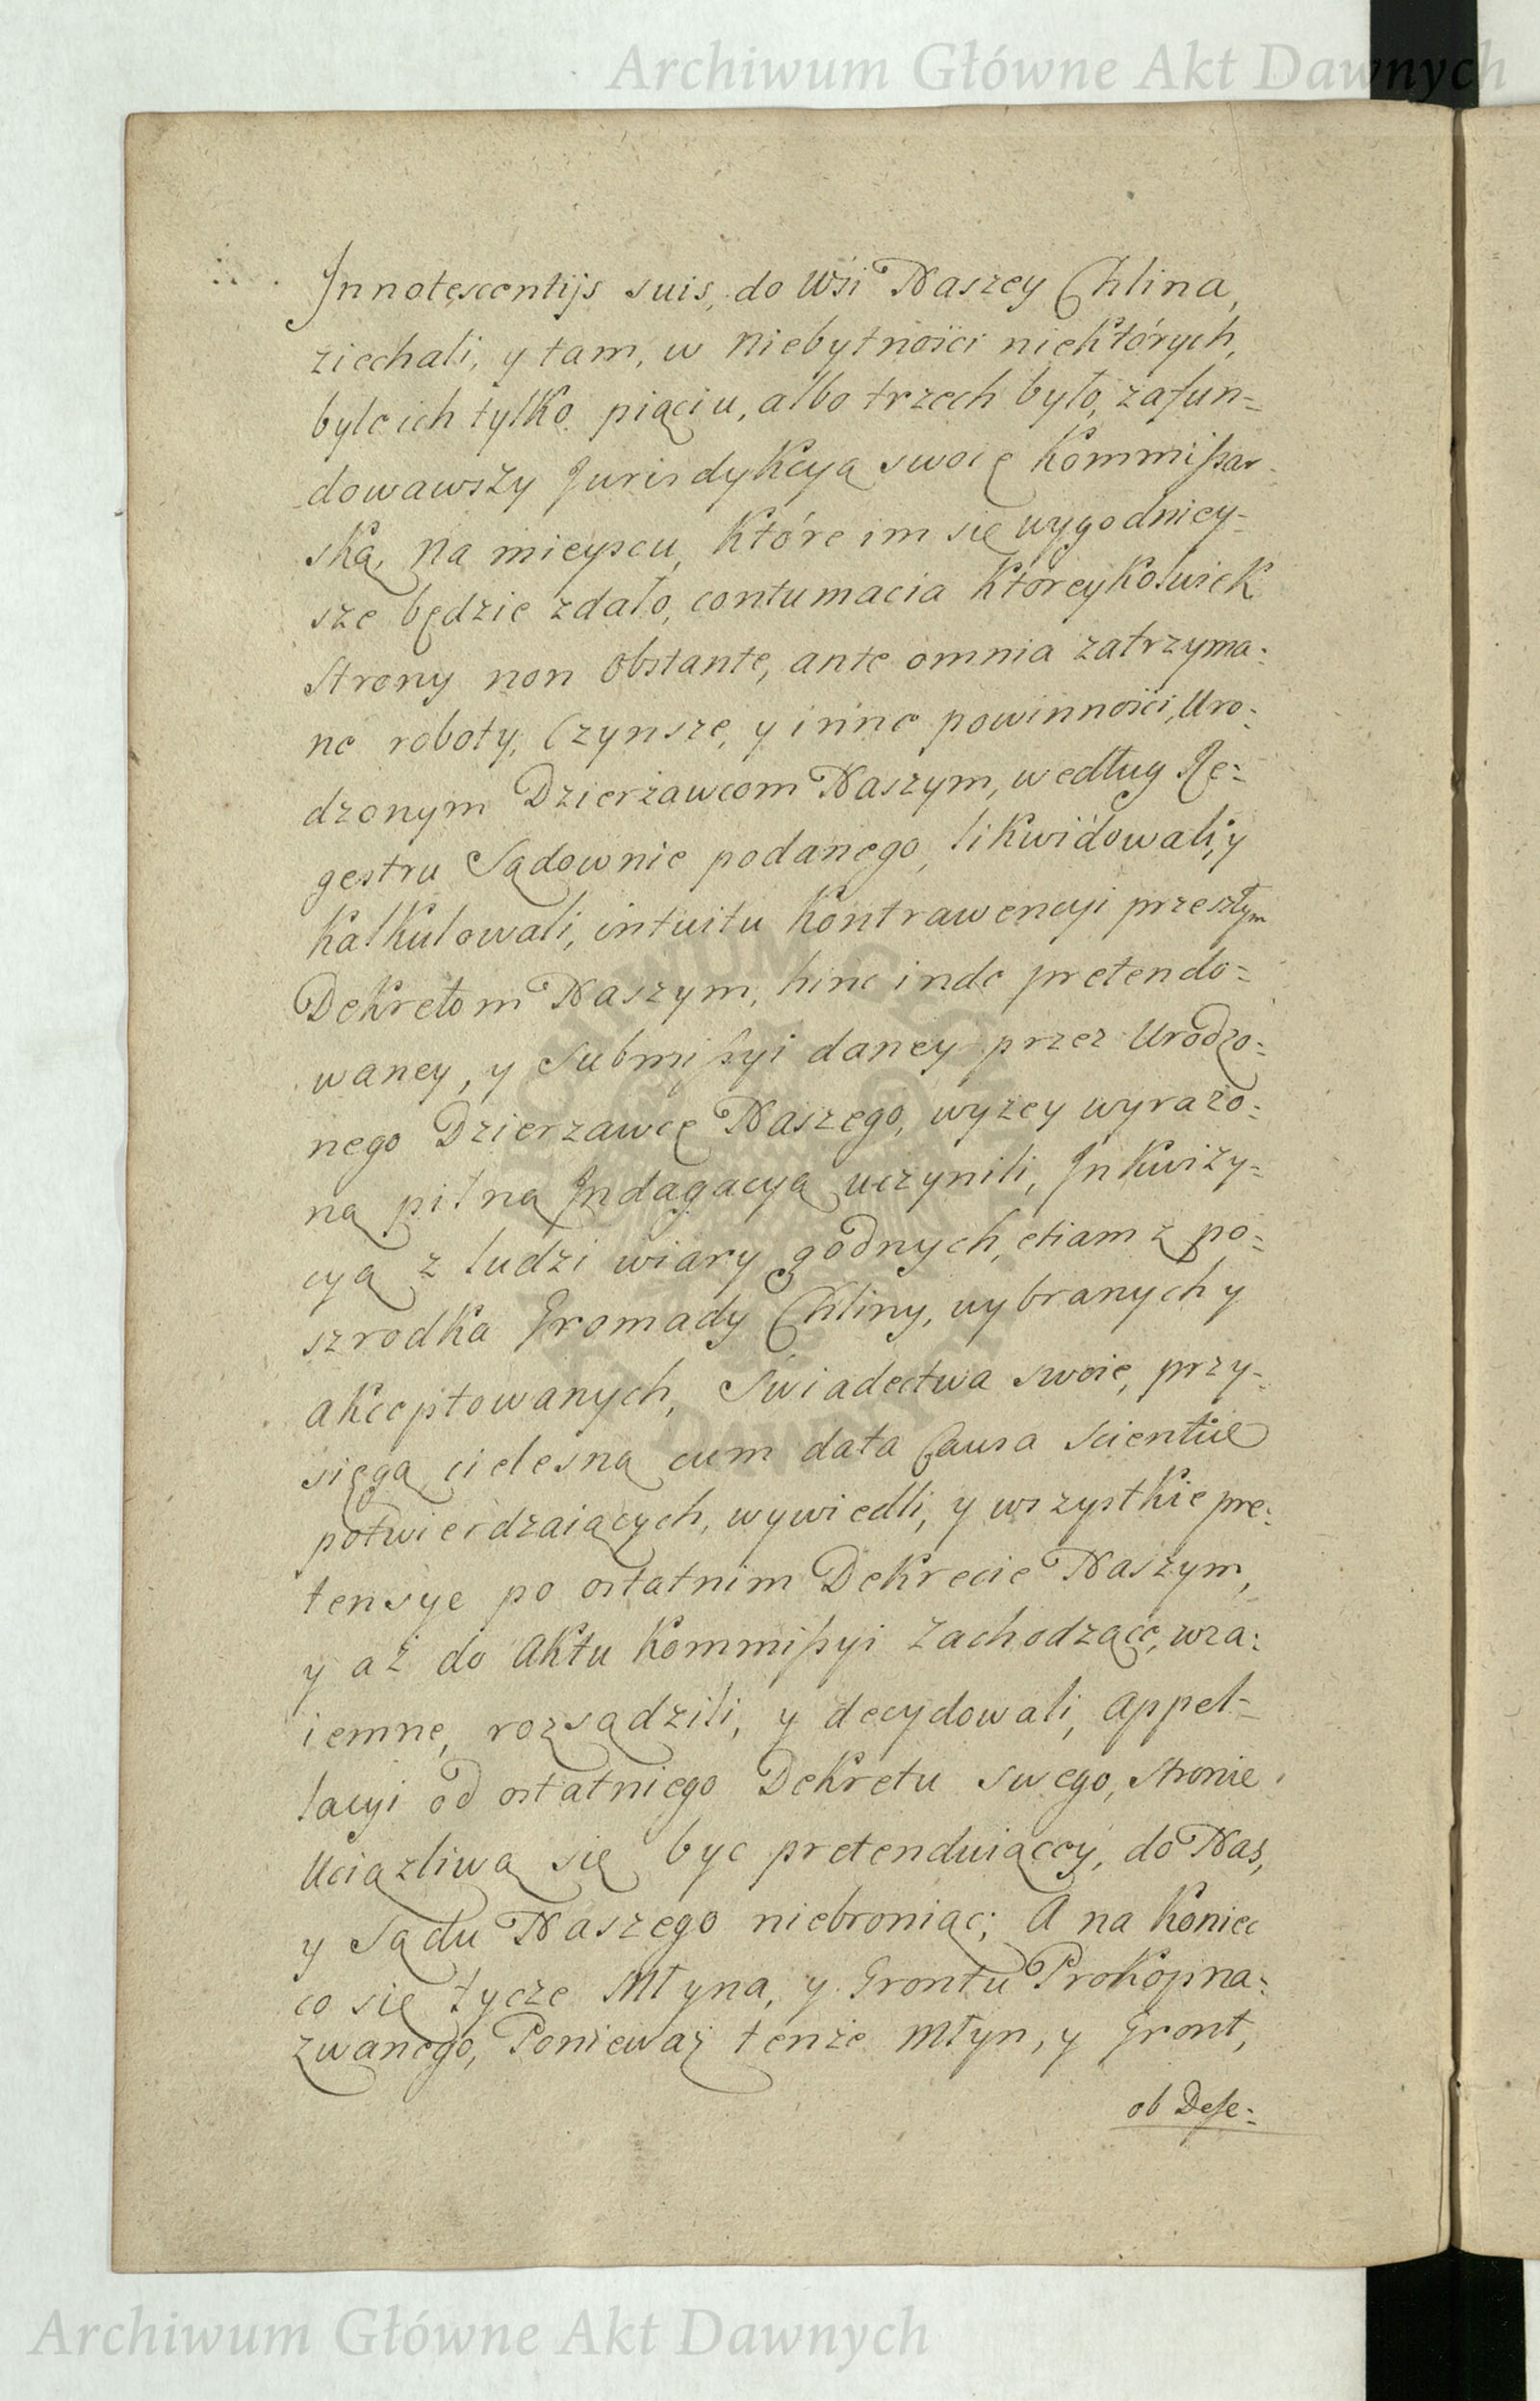 Archiwum Główne Akt Dawnych
Innotescentijs suis, do Wsi Naszey Chlina,
ziechali, y tam, w niebytności niektórych,
byle ich tylko piąciu, albo trzech było, zafun=
dowawszy Jurisdykcyą swoię Kommißar=
ską, na mieyscu, które im się wygodniey=
sze będzie zdało, contumacia któreykolwiek
strony non obstante, ante omnia zatrzyma=
ne roboty, Czynsze, y inne powinności, Uro=
dzonym Dzierżawcom Naszym, według Re=
gestru Sądownie podanego, likwidowali, y
kalkulowali, intuitu kontrawencyi przeszłym
Dekretom Naszym, hinc inde pretendo=
waney, y Submißyi daney przez Urodzo=
nego Dzierzawcę Naszego, wyzey wyrazo=
ną pilną Indagacyą uczynili, Inkwizy=
cyą z ludzi wiary godnych, etiam z po=
szrodka Gromady Chliny, wybranych y
akceptowanych, Swiadectwa swoie, przy=
sięgą cielesną cum data Causa Scientiæ
potwierdzaiących, wywiedli, y wszystkie pre=
tensye po ostatnim Dekrecie Naszym,
y aż do Aktu Kommißyi zachodzące, wza=
iemne, rozsądzili, y decydowali, appel=
lacyi od ostatniego Dekretu swego, stronie
Uciązliwą się byc pretenduiącey, do Nas,
y Sądu Naszego niebroniąc; A na koniec
co się tycze Młyna, y Grontu Prokop na=
zwanego, Ponieważ tenże Młyn, y Gront,
ob Dese=
Archiwum Główne Akt Dawnych